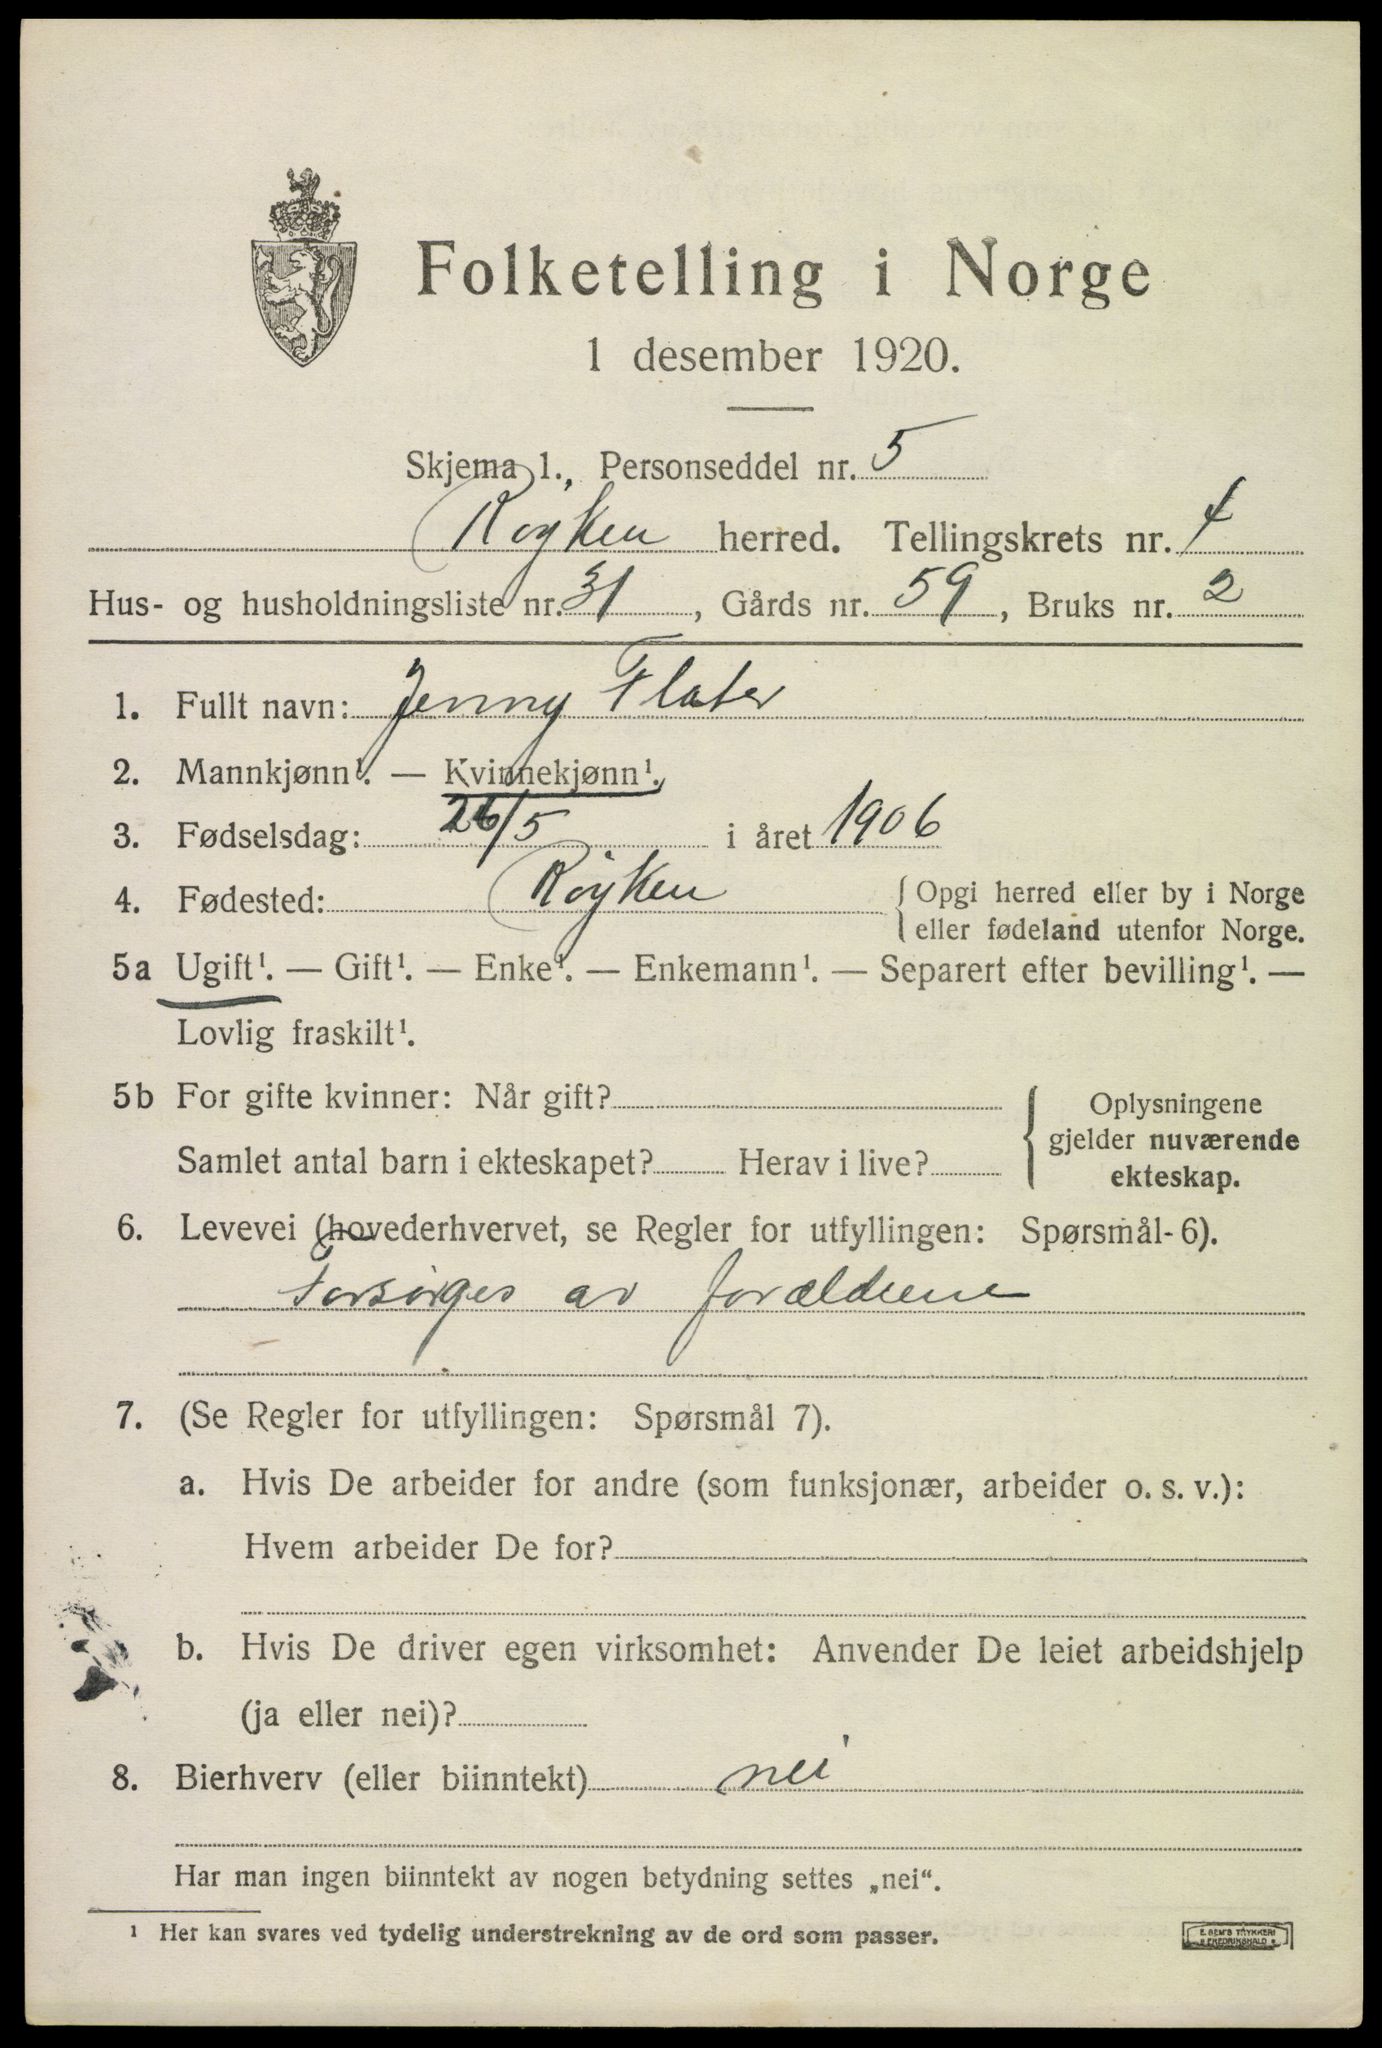 Folketelling i Norge
1 desember 1920.
Skjema 1., Personseddel nr. 5
Røyken herred. Tellingskrets nr. 4
Hus- og husholdningsliste nr. 31, Gårds nr. 59, Bruks nr. 2
1. Fullt navn: Jenny Flater
2. Mannkjønn¹. — Kvinnekjønn¹.
3. Fødselsdag: 26/5 i året 1906
4. Fødested: Røyken { Opgi herred eller by i Norge
eller fødeland utenfor Norge.
5a Ugift¹. — Gift¹. — Enke¹. — Enkemann¹. — Separert efter bevilling¹. —
Lovlig fraskilt¹.
5b For gifte kvinner: Når gift?
Samlet antal barn i ekteskapet? Herav i live?
{ Oplysningene
gjelder nuværende
ekteskap.
6. Levevei (hovederhvervet, se Regler for utfyllingen: Spørsmål 6).
Forsørges av forældrene
7. (Se Regler for utfyllingen: Spørsmål 7).
a. Hvis De arbeider for andre (som funksjonær, arbeider o. s. v.):
Hvem arbeider De for?
b. Hvis De driver egen virksomhet: Anvender De leiet arbeidshjelp
(ja eller nei)?
8. Bierhverv (eller biinntekt) nei
Har man ingen biinntekt av nogen betydning settes „nei“.
¹ Her kan svares ved tydelig understrekning av de ord som passer.
E. SEM'S TRYKKERI
FREDRIKSHALD